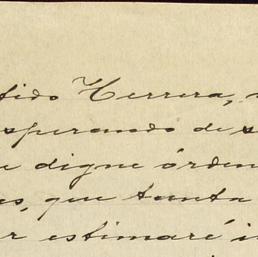 tido Herrera,
sperando de s
e digne órden
es, que tanta
r estimaré i